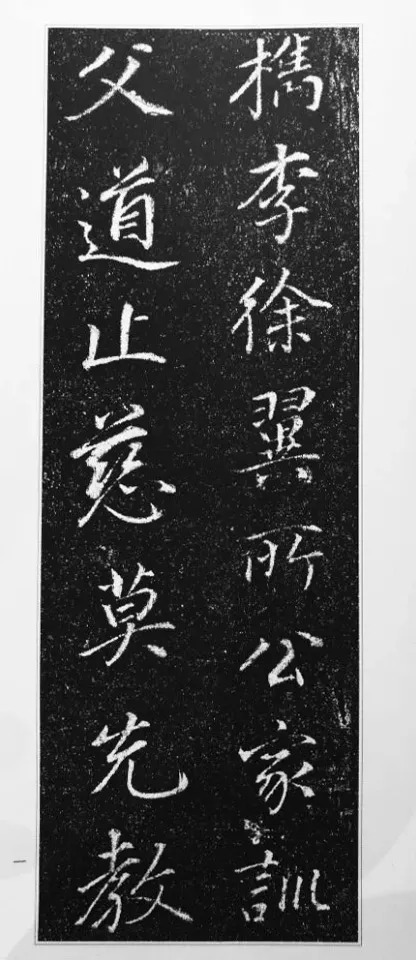 檇李徐翼所公家訓
父道止慈莫先教